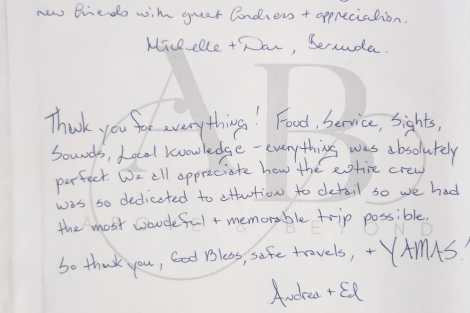 new friends with great fondness + appreciation.
Michelle + Dan, Bermuda.
Thank you for everything! Food, Service, Sights,
Sounds, Local Knowledge - everything was absolutely
perfect. We all appreciate how the entire crew
was so dedicated to attention to detail so we had
the most wonderful + memorable trip possible.
So thank you, God Bless, safe travels, + YAMAS!
Andrea + Ed
AB
& BEYOND